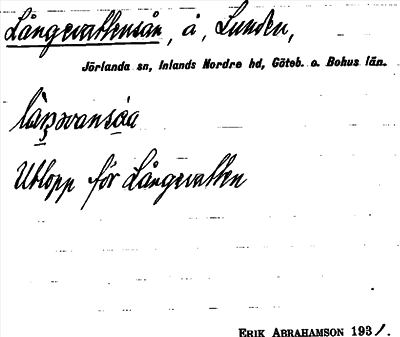 Långevattensån, å, Lunden,
Jörlanda sn, Inlands Nordre hd, Göteb. o. Bohus län.
Utlopp för Långevatten
ERIK ABRAHAMSON 1931.